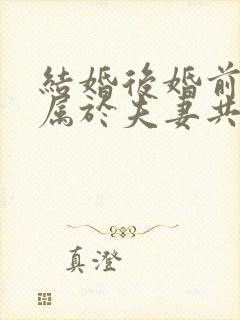 結婚後婚前
属於夫妻共
真澄